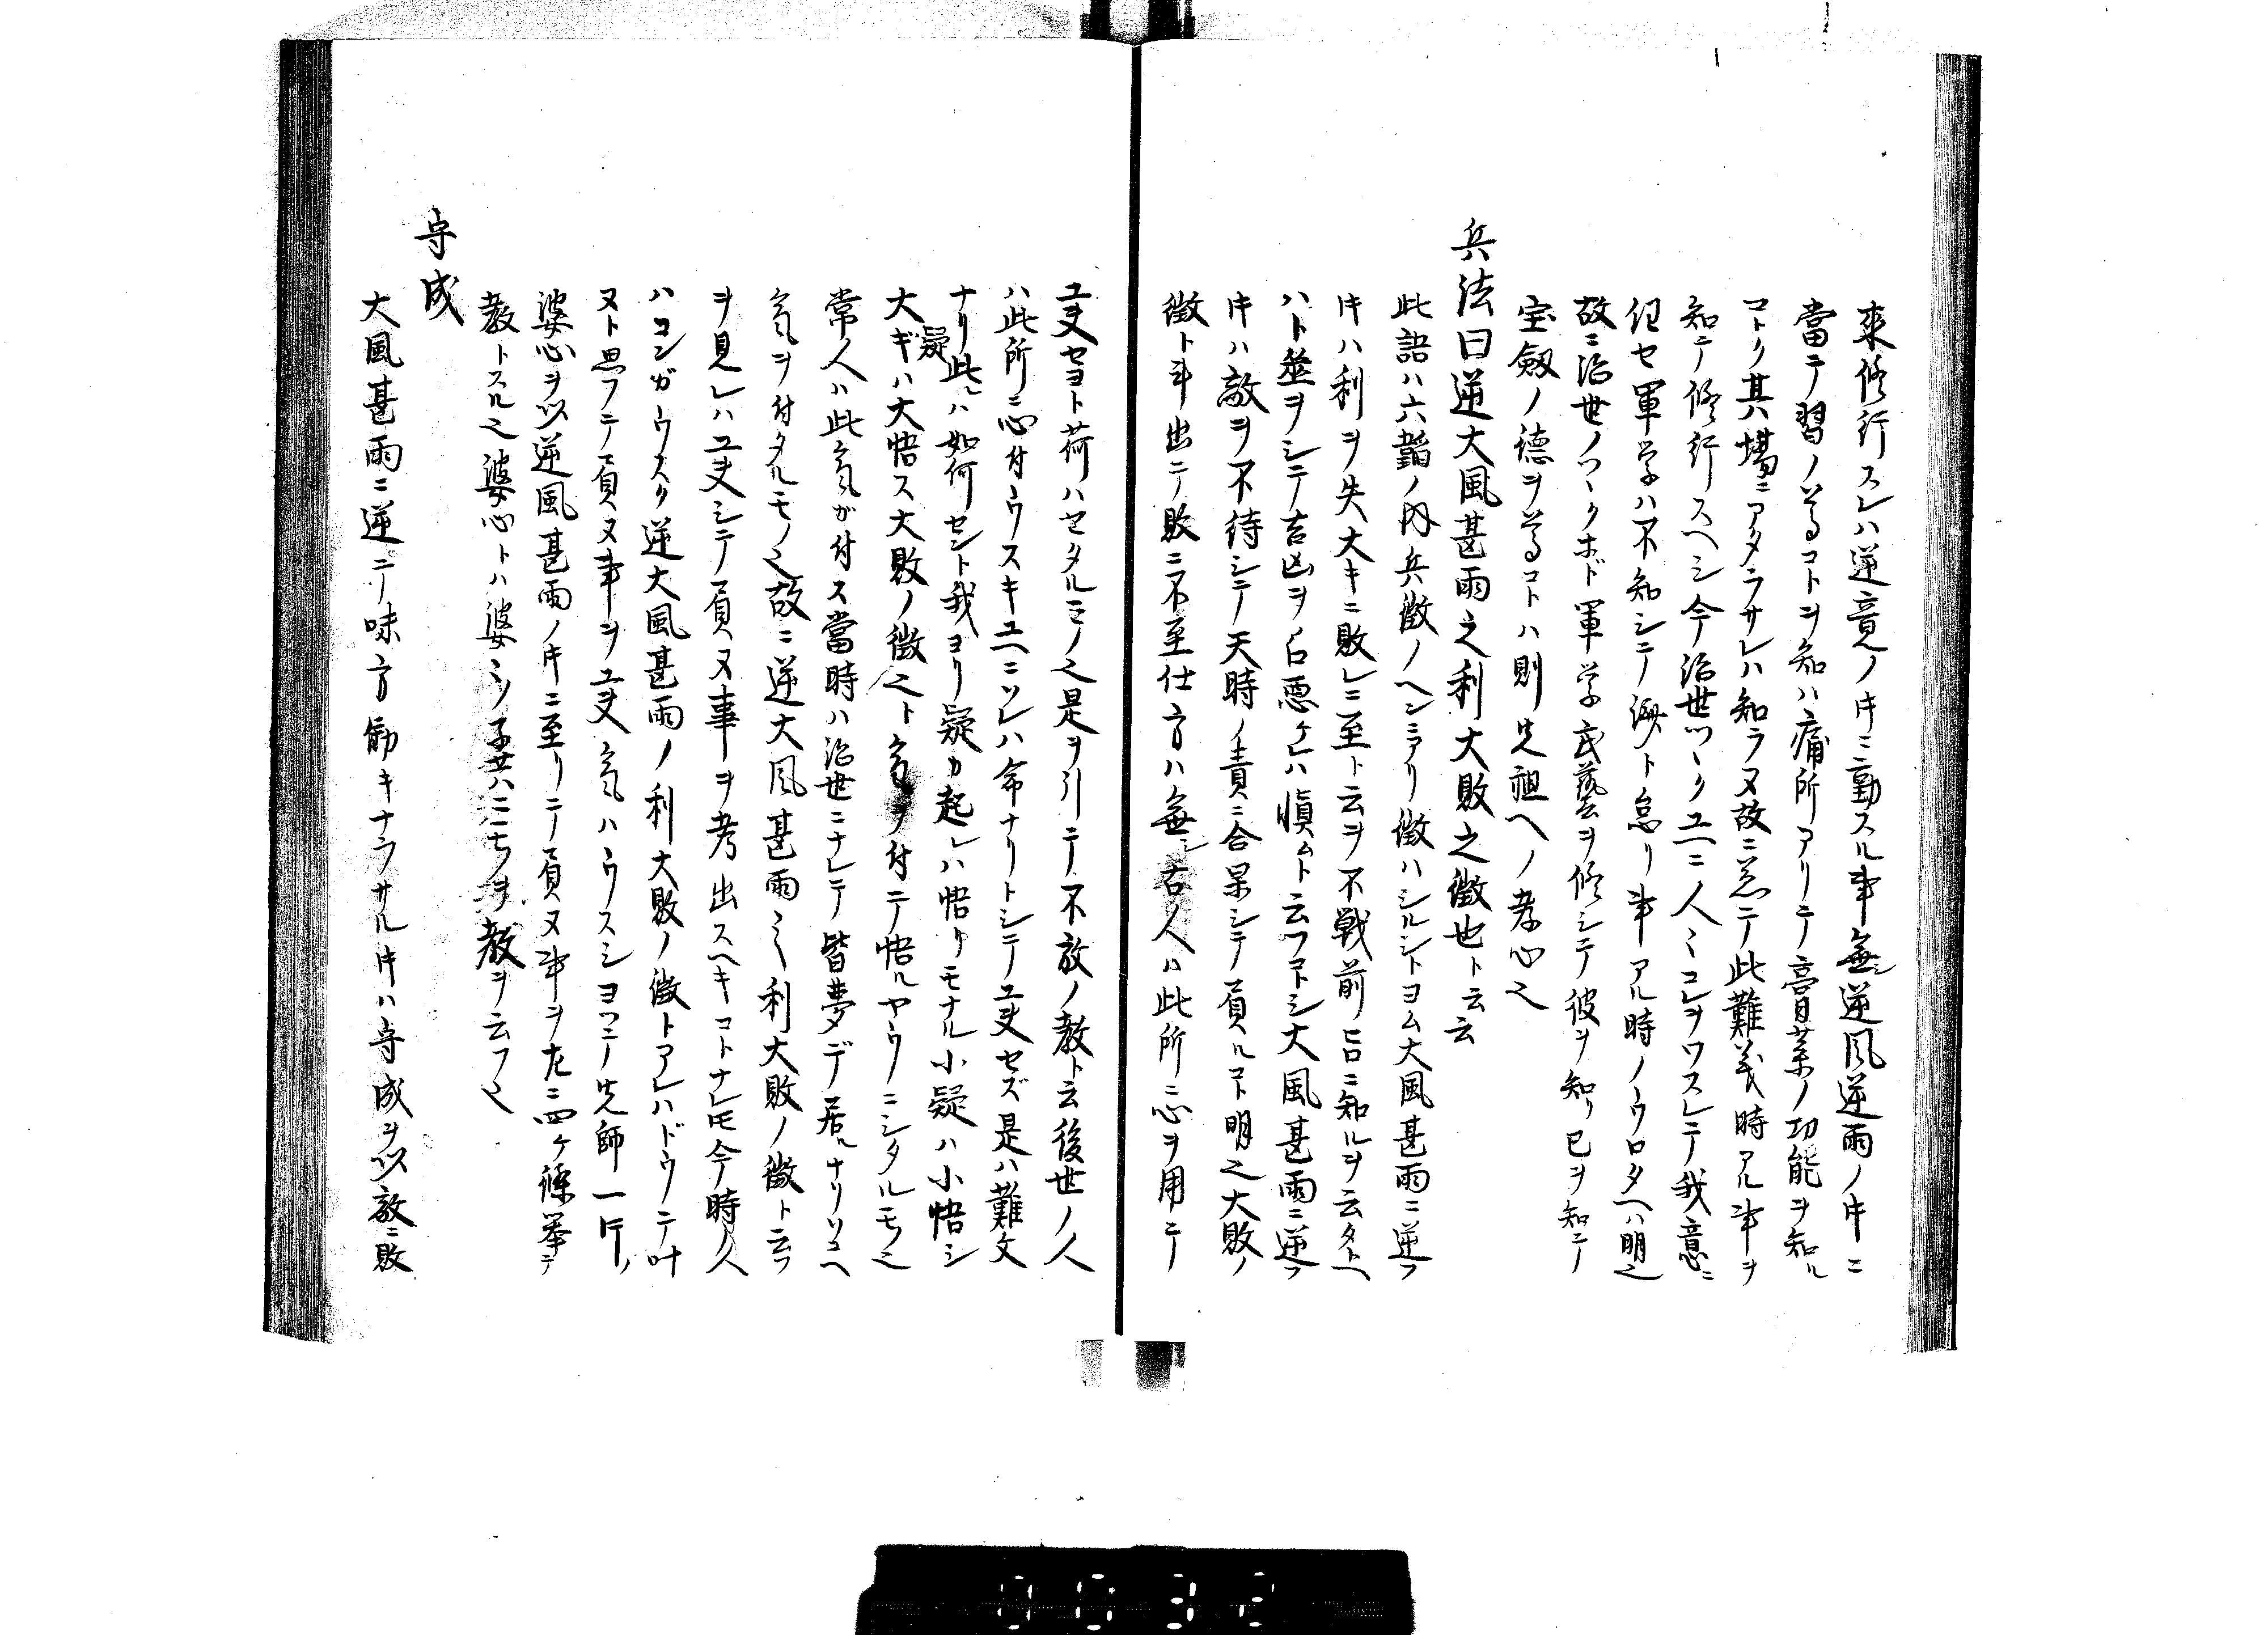 来修行スレハ逆意ノ㕝ニ動スル事無シ逆風逆雨ノ㕝ニ
當テ習ノ尊コトヲ知ハ痛所アリテ膏薬ノ功能ヲ知ル
コトク其場ニアタラサレハ知ラヌ故ニ忘テ此難義時アル事ヲ
知テ修行スヘシ今治世ツヽクユヘニ人〻コレヲワスレテ我意ニ
任セ軍学ハ不知シテ済ト怠リ事アル時ノウロタヘハ明也
故ニ治世ノツヽクホド軍学武藝ヲ修シテ彼ヲ知リ已ヲ知テ
宝劔ノ徳ヲ尊コトハ則先祖ヘノ孝心也
兵法曰逆大風甚雨之利大敗之徴也ト云云
此語ハ六韜ノ内兵徴ノヘンニアリ徴ハシルシトヨム大風甚雨ニ逆フ
㕝ハ利ヲ失大キニ敗レニ至ト云ヲ不戦前ニ知ルヲ云タトヘ
ハト筮ヲシテ吉凶ヲ占悪ケレハ慎ムト云フコトシ大風甚雨ニ逆フ
㕝ハ敵ヲ不待シテ天時ノ責ニ合果シテ負ルコト明也大敗ノ
徴ト斗出テ敗ニ不至仕方ハ無シ古人ハ此所ニ心ヲ用テ
工夫セヨト荷ハセタルモノ也是ヲ引テ不敗ノ教ト云後世ノ人
ハ此所ニ心付ウスキユヘニソレハ命ナリトシテ工夫セズ是ハ難文
ナリ此疑ハ如何セント我ヨリ疑カ起レハ悟リモナル小疑ハ小悟シ
大ギハ大悟ス大敗ノ徴也ト氣ヲ付テ悟ルヤウニシタルモノ也
常人ハ此氣ガ付ス當時ハ治世ニナレテ皆夢デ居ルナリソコヘ
氣ヲ付タルモノ也故ニ逆大風甚雨之利大敗ノ徴ト云フ
ヲ見レハ工夫シテ負ヌ事ヲ考出スヘキコトナレ𪜈今時ノ人
ハコンガウスク逆大風甚雨ノ利大敗ノ徴トアレハドウノテ叶
ヌト思フテ負ヌ事ヲ工夫氣ハウスシヨツテ先師一片ノ
婆心ヲ以逆風甚雨ノ㕝ニ至リテ負ヌ事ヲ左ニ四ケ條挙テ
教トスル也婆心トハ婆〻ノ子共ニ モノヲ教ヲ云フ也
守成
大風甚雨ニ逆テ味方働キナラサル㕝ハ守成ヲ以敵ニ敗